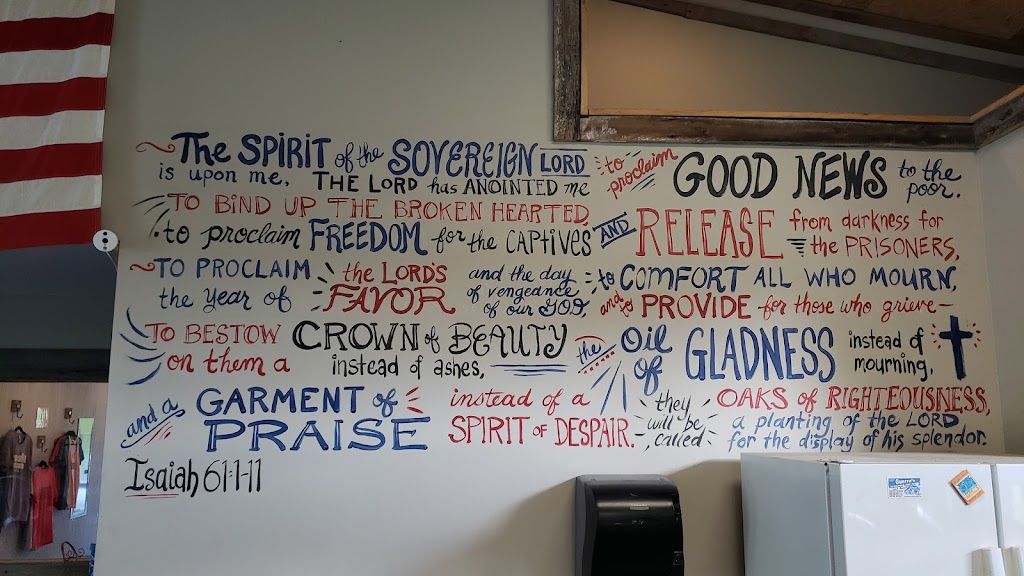 The SPIRIT of the SOVEREIGN LORD
is upon me, THE LORD has ANOINTED me
to proclaim GOOD NEWS to the poor.
TO BIND UP THE BROKEN HEARTED,
to proclaim FREEDOM for the CAPTIVES
AND RELEASE from darkness for
the PRISONERS,
TO PROCLAIM the LORD'S and the day
the Year of FAVOR of vengeance
of our GOD,
to COMFORT ALL WHO MOURN,
and to PROVIDE for those who grieve-
TO BESTOW CROWN of BEAUTY
on them a instead of ashes,
the OIL of GLADNESS instead of mourning,
and a GARMENT of PRAISE
instead of a
SPIRIT of DESPAIR.
they will be called OAKS of RIGHTEOUSNESS,
a planting of the LORD
for the display of his splendor.
Isaiah 61:1-11